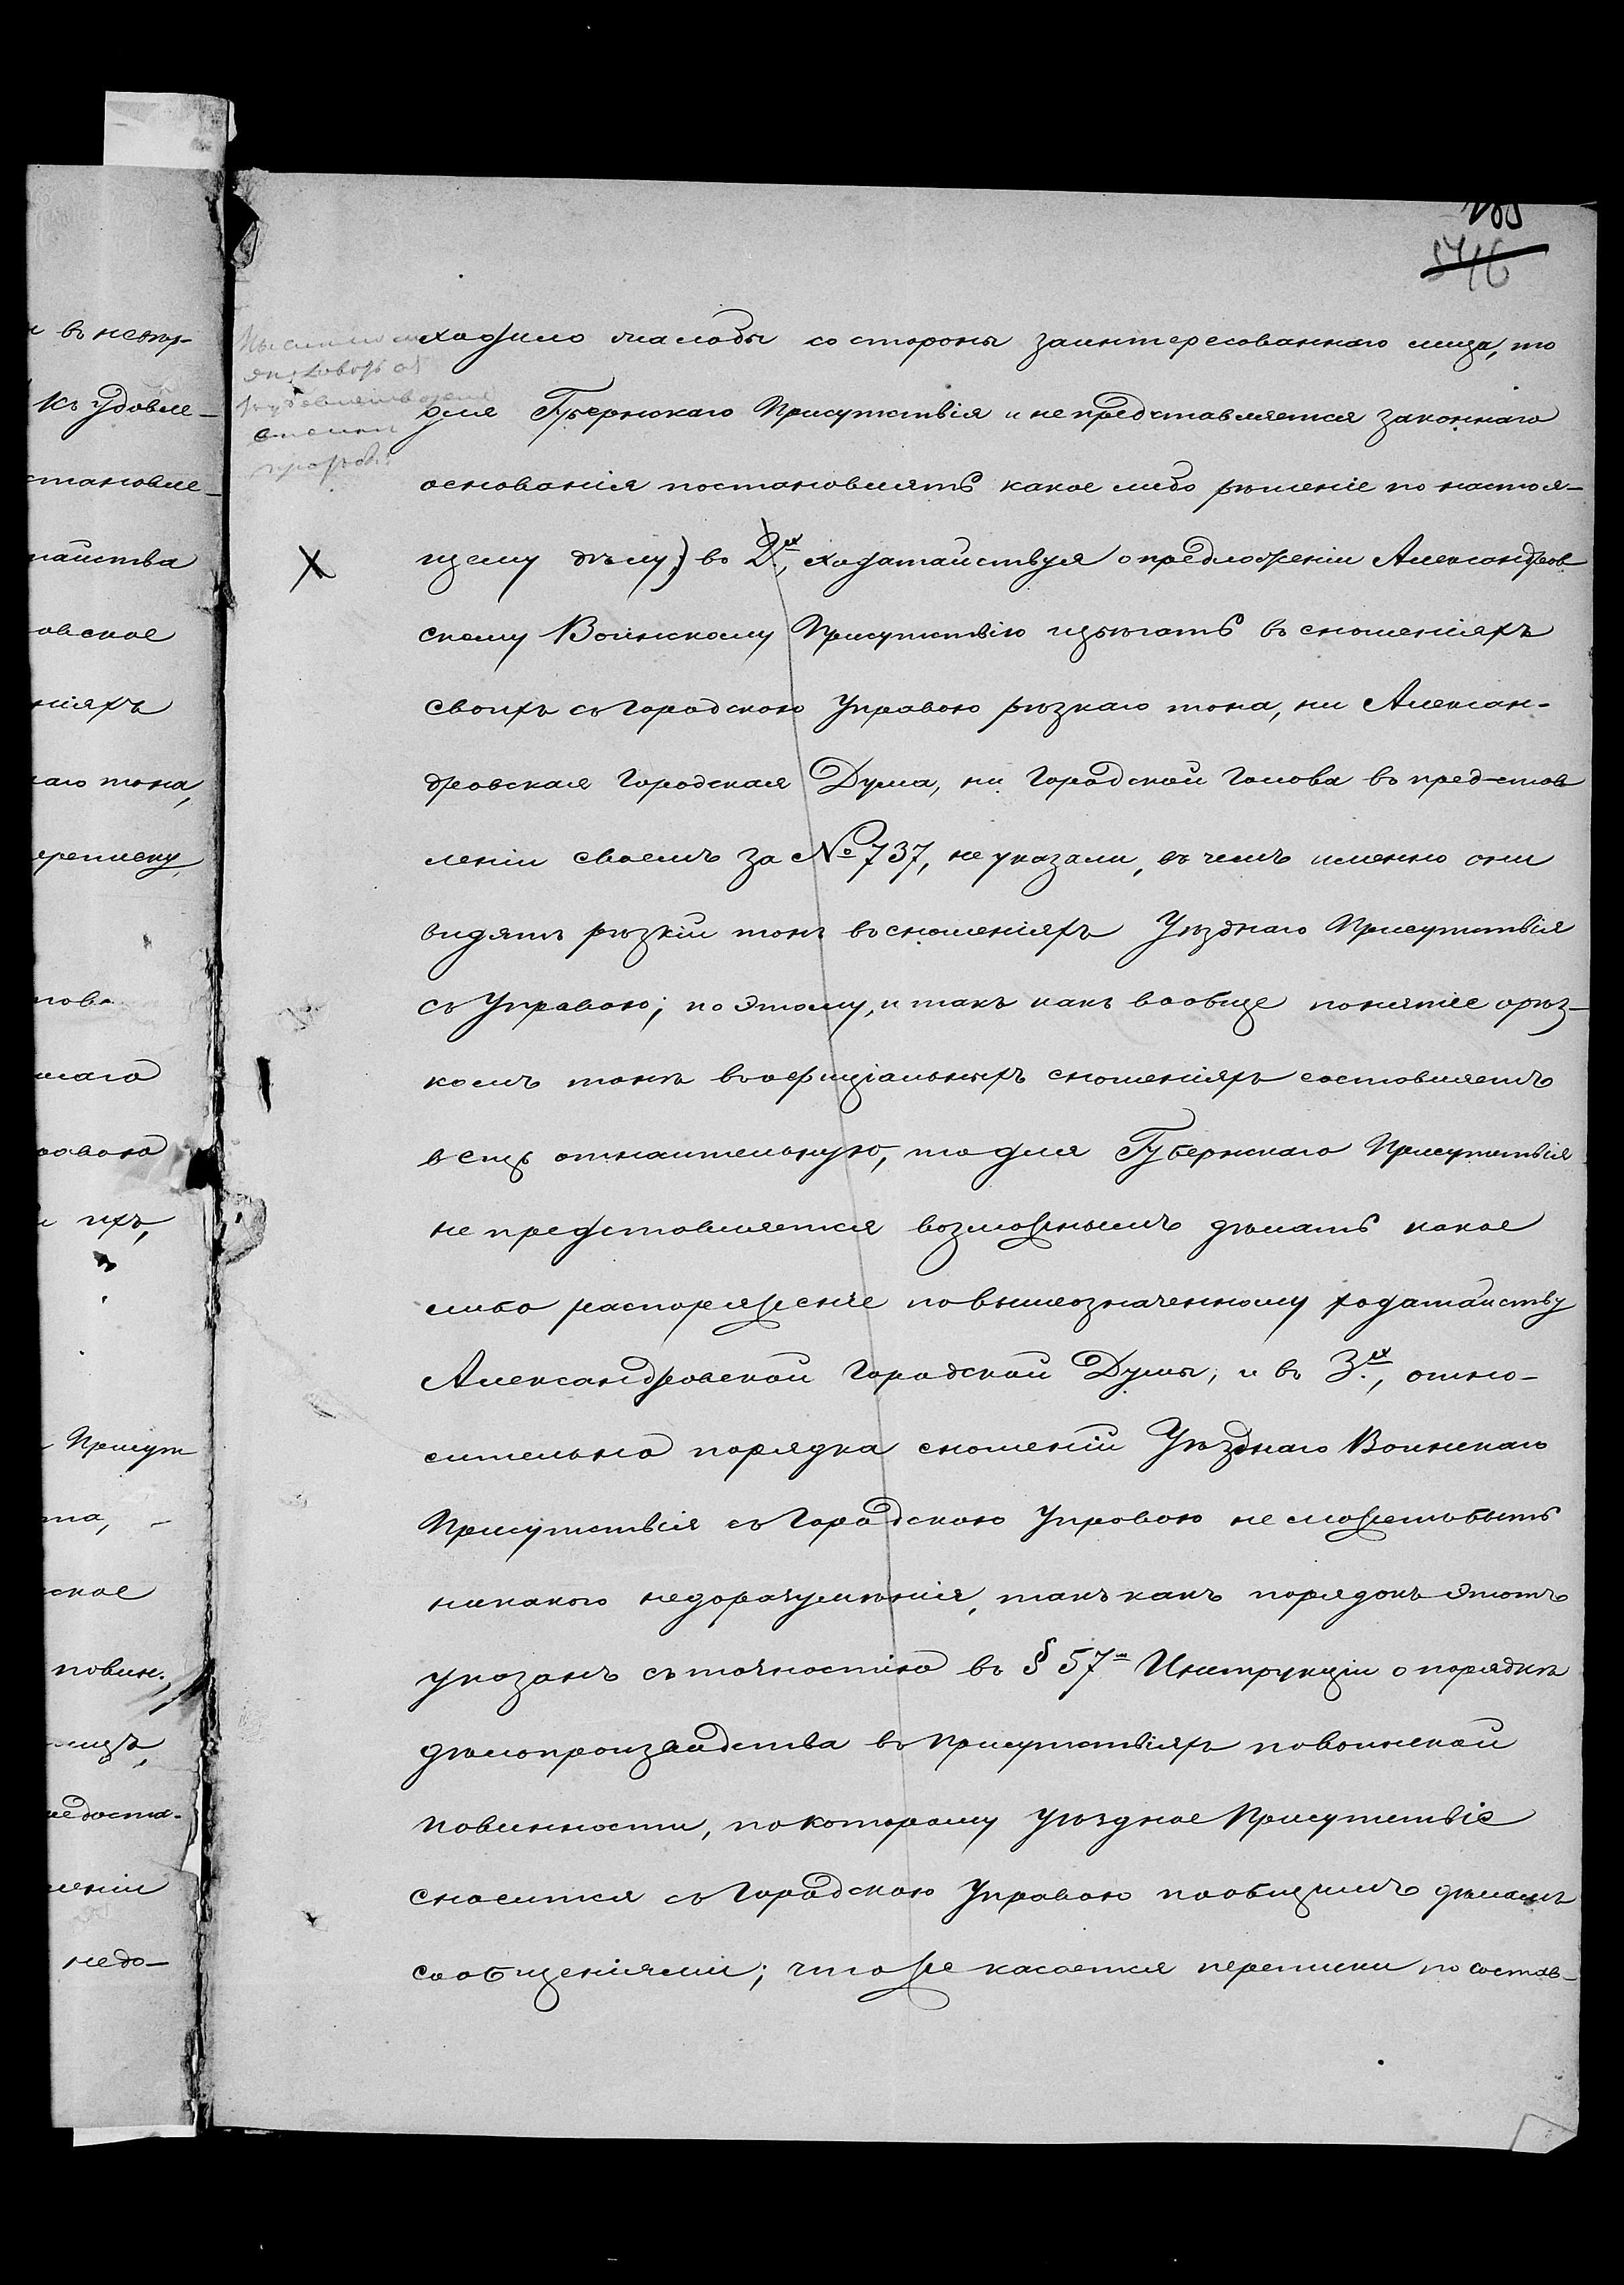 546
ходило жалобы со стороны заинтересованнаго лица, то
для Губернскаго Присутствія и не представляется законнаго
основанія постановлять какое либо рѣшеніе по настоя-
щему дѣлу) во 2х, ходатайствуя о предложеніи Александров
скому Воинскому Присутствію избѣгать въ сношеніяхъ
своихъ съ Городскою Управою рѣзкаго тона, ни Алексан-
дровская Городская Дума, ни Городской Голова въ представ
леніи своемъ за № 737, не указали, въ чемъ именно они
видятъ рѣзкій тонъ въ сношеніяхъ Уѣзднаго Присутствія
съ Управою; по этому, и такъ какъ вообще понятіе о рѣз-
комъ тонѣ въ оффиціальныхъ сношеніяхъ составляетъ
вещь относительную, то для Губернскаго Присутствія
не представляется возможнымъ дѣлать какое
либо распоряженіе по вышеозначенному ходатайству
Александровской Городской Думы; и въ 3х, отно-
сительно порядка сношеній Уѣзднаго Воинскаго
Присутствія съ Городскою Управою не можетъ быть
никакого недоразумѣнія, такъ какъ порядокъ этотъ
указанъ съ точностію въ § 57м Инструкціи о порядкѣ
дѣлопроизводства въ Присутствіяхъ по воинской
повинности, по которому Уѣздное Присутствіе
сносится съ Городскою Управою по общимъ дѣламъ
сообщеніями; что же касается переписки по состав-
въ непр-
къ удовле-
становле-
тайства
овское
ніяхъ
наго тона,
ереписку
ихъ,
Присут
та,
ское
повин.
лицъ,
ленiи
недо-